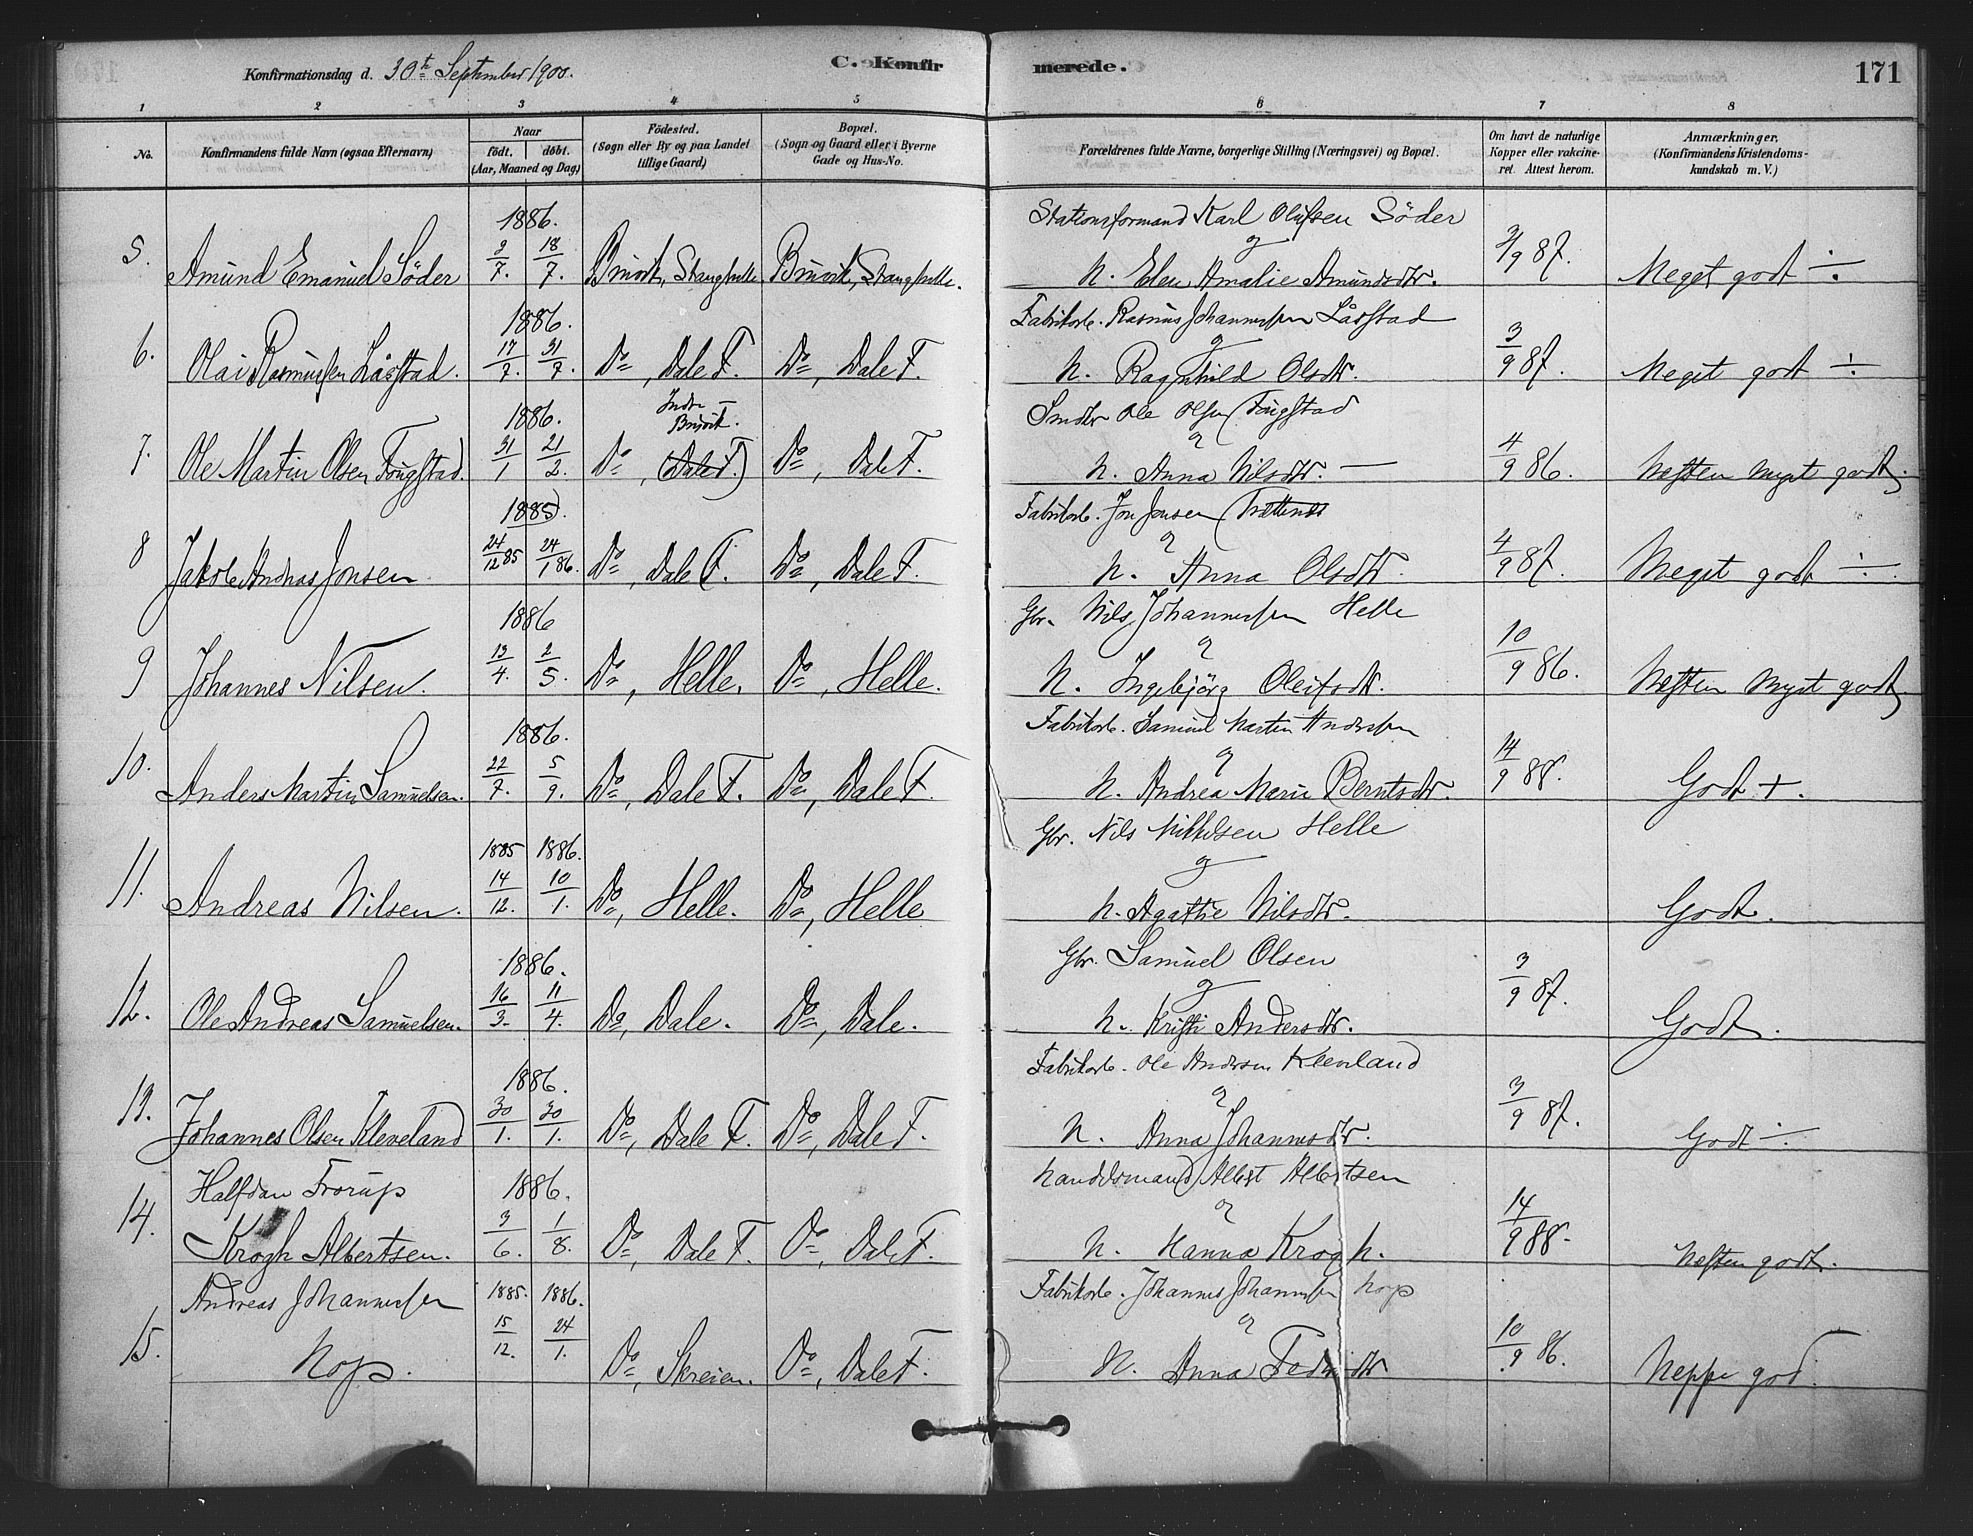 Konfirmationsdag d. 30te September 1900.
C. Konfirmerede.
171
1 2 3 4 5 6 7 8
No.
Konfirmandens fulde Navn (ogsaa Efternavn)
Naar
født. døbt.
(Aar, Maaned og Dag)
Fødested.
(Sogn eller By og paa Landet
tillige Gaard)
Bopæl.
(Sogn og Gaard eller i Byerne
Gade og Hus-No.
Forældrenes fulde Navne, borgerlige Stilling (Næringsvei) og Bopæl.
Om havt de naturlige
Kopper eller vakcine-
ret. Attest herom.
Anmærkninger.
(Konfirmandens Kristendoms-
kundskab m. V.)
1886. Stationsformand Karl Olufsen Söder
5. Amund Emanuel Söder 9/7. 18/7. Bruvik, Bruvik, og 2/9 87.
h. Elen Amalie Amundsdtr. Meget godt ÷
1886. Fabrikarb. Rasmus Johannessen Låstad
6. Olai Rasmussen Låstad. 17/7. 31/7. Do, Dale F. Do, Dale F. og 3/9 87.
h. Ragnhild Olsdtr. Meget godt ÷
1886. Indre Bruvik. Ole Olsen Fougstad
7. Ole Martin Olsen Fougstad. 31/1 21/2. Do, (Dale F.) Do, Dale F. og 4/9 86.
h. Anna Nilsdtr. — Næsten meget godt.
1885. Fabrikarb. Jon Jonsen
8 Jakob Andreas Jonsen 24/12 85 24/1 86. Do, Dale F. Do, Dale F. og 4/9 87.
h. Anna Olsdtr. Meget godt ÷
1886 Gbr. Nils Johannessen Helle
9 Johannes Nilsen. 13/4. 2/5. Do, Helle. Do, Helle. og 10/9 86.
h. Ingebjörg Oleifsdtr. Næsten meget godt
1886. Fabrikarb. Samuel Martin Andersen
10. Anders Martin Samuelsen. 22/7. 5/9. Do, Dale F. Do, Dale F. og 14/9 88.
h. Andrea Marie Berntsdtr. Godt +.
1885 1886. Gbr. Nils Mikkelsen Helle
11. Andreas Nilsen. 14/12. 10/1. Do, Helle. Do, Helle og
h. Agathe Nilsdtr. Godt.
1886. Gbr. Samuel Olsen
12. Ole Andreas Samuelsen. 16/3. 11/4. Do, Dale. Do, Dale. og 3/9 87.
h. Kristi Andersdtr. Godt.
1886. Fabrikarb. Ole Andersen Kleveland
13. Johannes Olsen Kleveland 30/1. 30/1. Do, Dale F. Do, Dale F. og 3/9 87.
h. Anna Johannesdtr. Godt ÷
Halfdan Frorup 1886. Handelsmand Albert Albertsen
14. Krogh Albertsen. 3/6. 1/8. Do, Dale F. Do, Dale F. og 14/9 88.
h. Hanna Krogh. Næsten godt.
Andreas Johannessen 1885. 1886. Fabrikarb. Johannes Johannessen Hop
15. Hop. 15/12. 24/1. Do, Skreien. Do, Dale F. og 10/9 86.
h. Anna Neppe god.